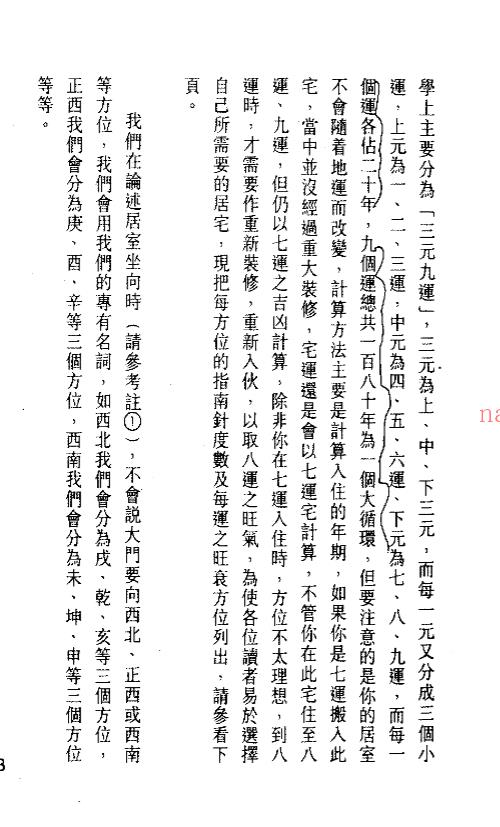 學上主要分為「三元九運」，三元為上、中、下三元，而每一元又分成三個小
運，上元為一、二、三運，中元為四、五、六運、下元為七、八、九運，而每一
個運各佔二十年，九個運總共一百八十年為一個大循環，但要注意的是你的居室
不會隨着地運而改變，計算方法主要是計算入住的年期，如果你是七運搬入此
宅，當中並沒經過重大裝修，宅運還是會以七運宅計算，不管你在此宅住至八
運、九運，但仍以七運之吉凶計算，除非你在七運入住時，方位不太理想，到八
運時，才需要作重新裝修，重新入伙，以取八運之旺氣，為使各位讀者易於選擇
自己所需要的居宅，現把每方位的指南針度數及每運之旺衰方位列出，請參看下
頁。
我們在論述居室坐向時（請參考註①），不會說大門要向西北、正西或西南
等方位，我們會用我們的專有名詞，如西北我們會分為戌、乾、亥等三個方位，
正西我們會分為庚、酉、辛等三個方位，西南我們會分為未、坤、申等三個方位
等等。
na